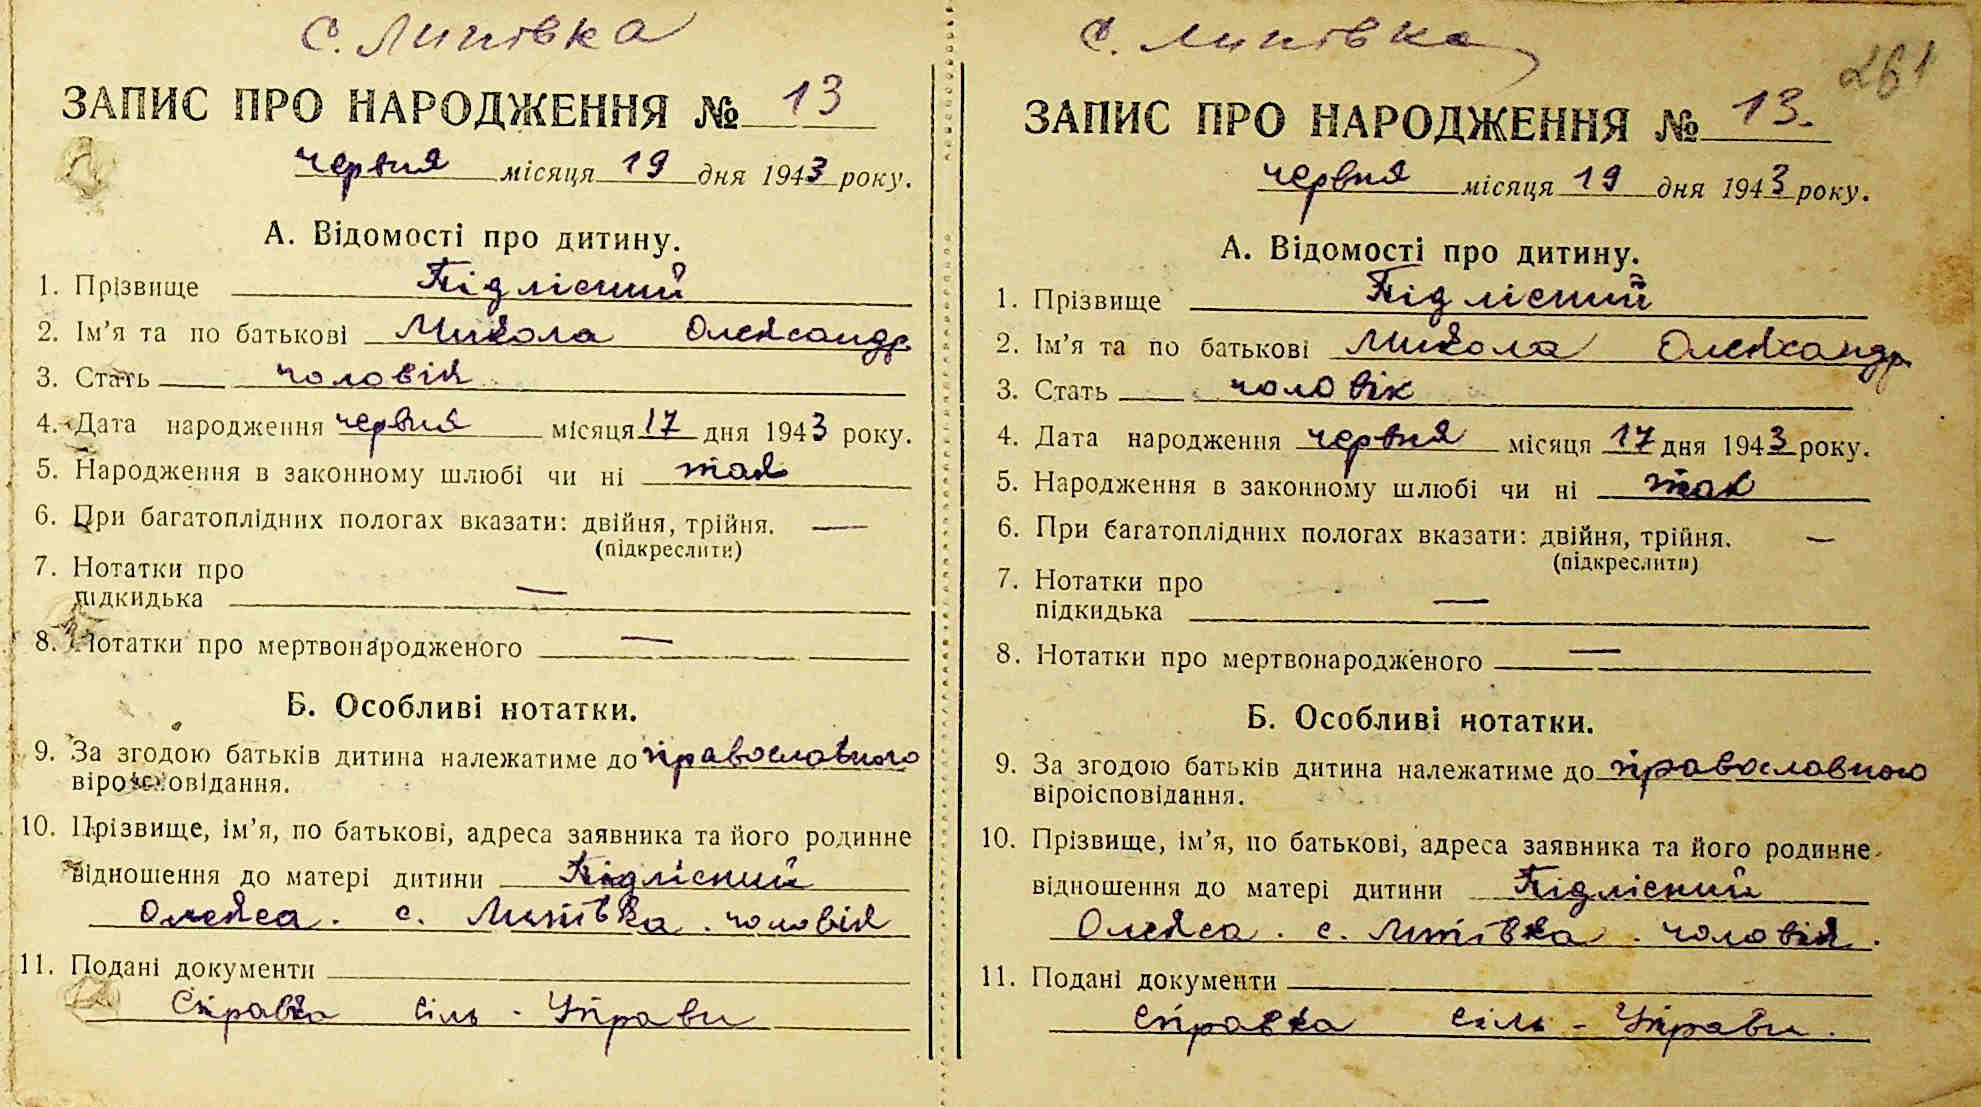 с. Липівка
ЗАПИС ПРО НАРОДЖЕННЯ № 13
червня місяця 19 дня 1943 року.
А. Відомості про дитину.
1. Прізвище Підлісний
2. Ім’я та по батькові Микола Олександр
3. Стать чоловік
4. Дата народження червня місяця 17 дня 1943 року.
5. Народження в законному шлюбі чи ні так
6. При багатоплідних пологах вказати: двійня, трійня. —
(підкреслити)
7. Нотатки про
підкидька —
8. Нотатки про мертвонародженого —
Б. Особливі нотатки.
9. За згодою батьків дитина належатиме до православного
віроісповідання.
10. Прізвище, ім’я, по батькові, адреса заявника та його родинне
відношення до матері дитини Підлісний
Олекса . с. Липівка . чоловік
11. Подані документи
Справка сіль - Управи
с. Липівка
261
ЗАПИС ПРО НАРОДЖЕННЯ № 13.
червня місяця 19 дня 1943 року.
А. Відомості про дитину.
1. Прізвище Підлісний
2. Ім’я та по батькові Микола Олександр
3. Стать чоловік
4. Дата народження червня місяця 17 дня 1943 року.
5. Народження в законному шлюбі чи ні так
6. При багатоплідних пологах вказати: двійня, трійня. —
(підкреслити)
7. Нотатки про
підкидька —
8. Нотатки про мертвонародженого —
Б. Особливі нотатки.
9. За згодою батьків дитина належатиме до православного
віроісповідання.
10. Прізвище, ім’я, по батькові, адреса заявника та його родинне
відношення до матері дитини Підлісний
Олекса . с. Липівка . чоловік .
11. Подані документи
Справка сіль - Управи .